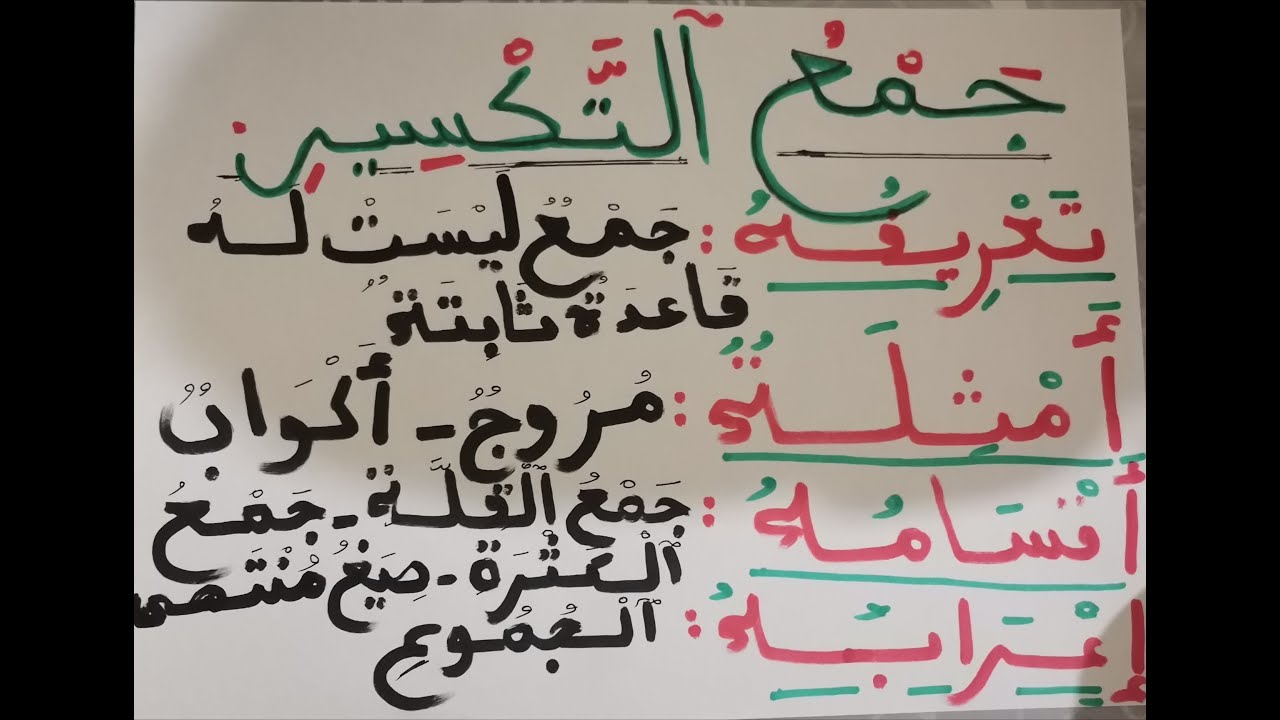 جَمْعُ ٱلتَّكْسِيرِ
تَعْرِيفُهُ : جَمْعٌ لَيْسَتْ لَهُ
قَاعِدَةٌ ثَابِتَةٌ
أَمْثِلَةٌ : مُرُوجٌ - أَكْوَابٌ
أَقْسَامُهُ : جَمْعُ ٱلْقِلَّةِ - جَمْعُ
ٱلْكَثْرَةِ - صِيَغُ مُنْتَهَى
ٱلْجُمُوعِ
إِعْرَابُهُ :